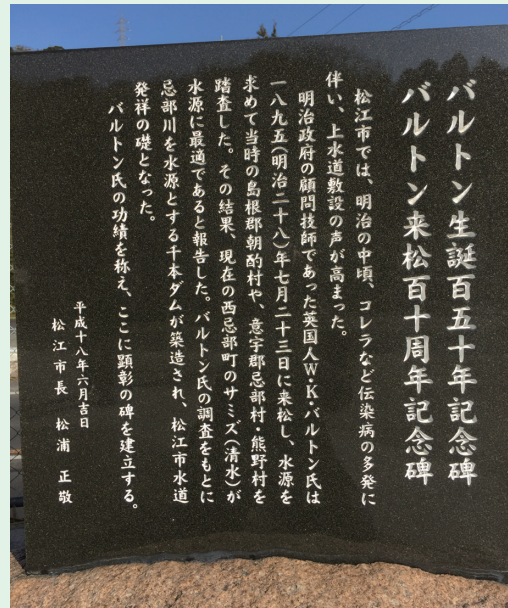 バルトン生誕百五十年記念碑
バルトン来松百十周年記念碑
松江市では、明治の中頃、コレラなど伝染病の多発に
伴い、上水道敷設の声が高まった。
明治政府の顧問技師であった英国人W・K・バルトン氏は
一八九五(明治二十八)年七月二十三日に来松し、水源を
求めて当時の島根郡朝酌村や、意宇郡忌部村・熊野村を
踏査した。その結果、現在の西忌部町のサミズ(清水)が
水源に最適であると報告した。バルトン氏の調査をもとに
忌部川を水源とする千本ダムが築造され、松江市水道
発祥の礎となった。
バルトン氏の功績を称え、ここに顕彰の碑を建立する。
平成十八年六月吉日
松江市長 松浦正敬